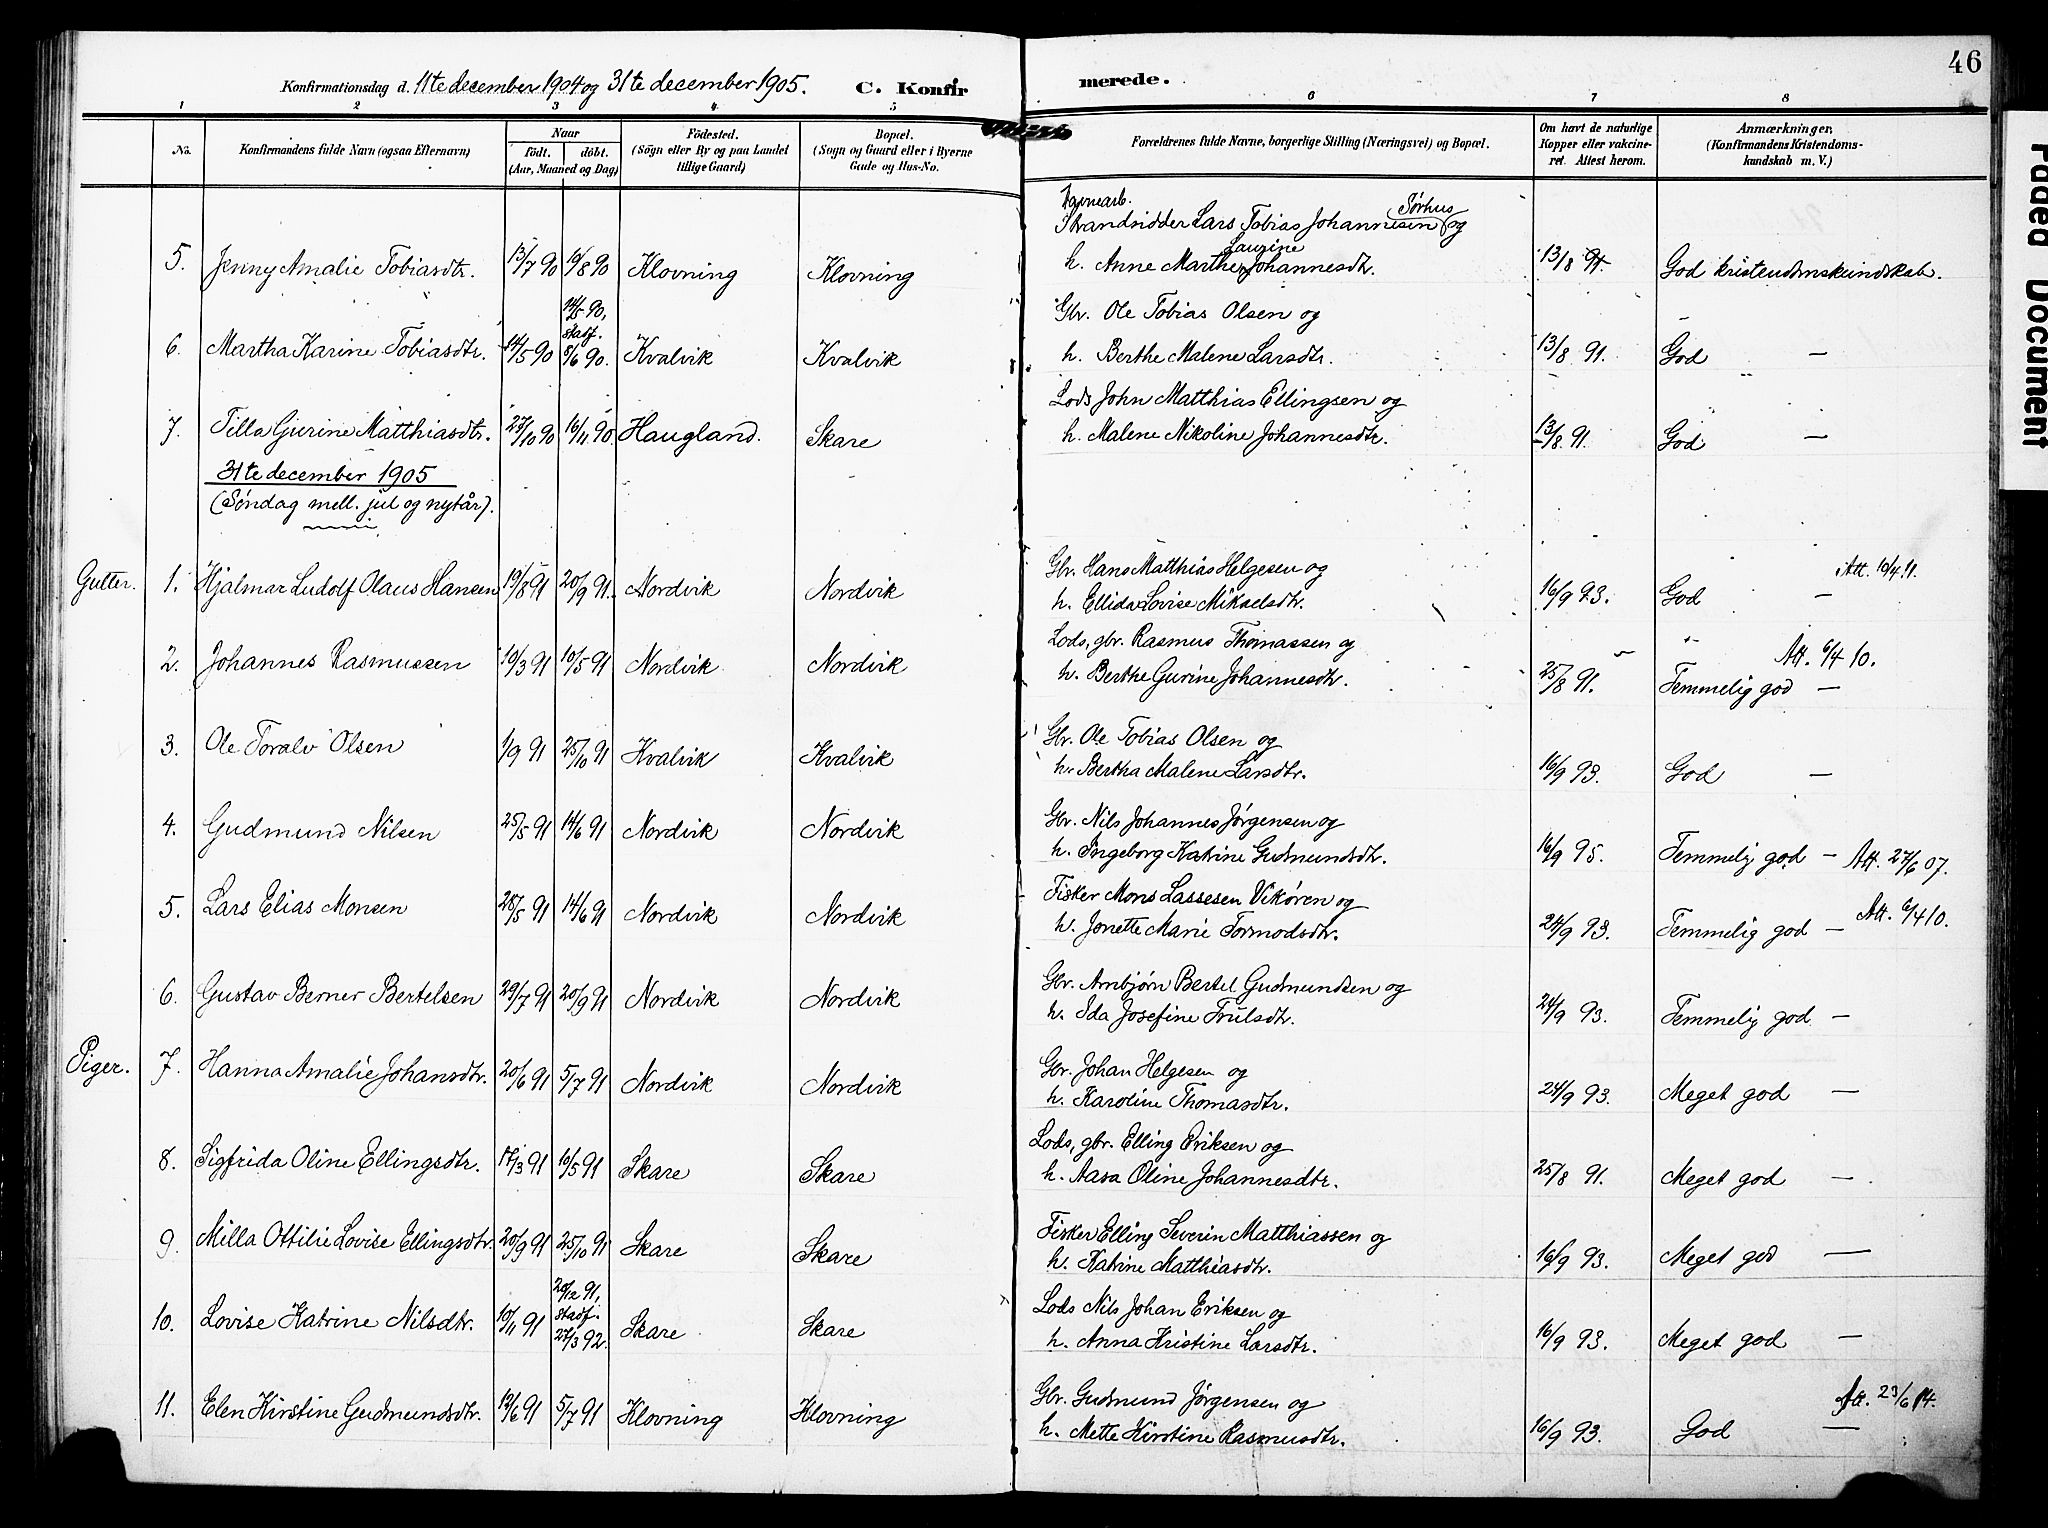 46
Konfirmationsdag d. 11te december 1904 og 31te december 1905. C. Konfir merede.
1 2 3 4 5 6 7 8
No. Konfirmandens fulde Navn (ogsaa Efternavn) Naar født. døbt. (Aar, Maaned og Dag) Fødested. (Sogn eller By og paa Landet tillige Gaard) Bopæl. (Sogn og Gaard eller i Byerne Gade og Hus-No. Forældrenes fulde Navne, borgerlige Stilling (Næringsvei) og Bopæl. Om havt de naturlige Kopper eller vakcineret. Attest herom. Anmærkninger, (Konfirmandens Kristendomskundskab m. V.)
Havnearb. Tørhus
Strandsidder Lars Tobias Johannesen og
5. Jenny Amalie Tobiasdtr. 13/7 90 10/8 90 Klovning Klovning h. Anne Marthe Laurine Johannesdtr. 13/8 91. God kristendomskundskab.
14/5 90, Gbr. Ole Tobias Olsen og
6. Martha Karine Tobiasdtr. 14/5 90 stadf. 8/6 90. Kvalvik Kvalvik h. Berthe Malene Larsdtr. 13/8 91. God —
Lods John Matthias Ellingsen og
7. Tilla Gjurine Matthiasdtr. 23/10 90 16/11 90. Haugland. Skare h. Malene Nikoline Johannesdtr. 13/8 91. God —
31te december 1905
(Søndag mell. jul og nytår).
Gbr. Hans Matthias Helgesen og Att. 10/4 11.
Gutter. 1. Hjalmar Ludolf Olaus Hansen 19/8 91 20/9 91. Nordvik Nordvik h. Ellida Lovise Mikaelsdtr. 16/9 93. God —
Lods, gbr. Rasmus Thomassen og Att. 6/4 10.
2. Johannes Rasmussen 19/3 91 10/5 91 Nordvik Nordvik h. Berthe Gurine Johannesdtr. 25/8 91. Temmelig god —
Gbr. Ole Tobias Olsen og
3. Ole Toralv Olsen 1/9 91 25/10 91 Kvalvik Kvalvik h. Bertha Malene Larsdtr. 16/9 93. God —
Gbr. Nils Johannes Jørgensen og
4. Gudmund Nilsen 25/5 91 14/6 91 Nordvik Nordvik h. Ingeborg Katrine Gudmundsdtr. 16/9 95. Temmelig god — Att. 27/6 07.
Fisker Mons Lassesen Vikøren og Att. 6/4 10.
5. Lars Elias Monsen 28/5 91 14/6 91 Nordvik Nordvik h. Jonette Marie Tormodsdtr. 24/9 93. Temmelig god —
Gbr. Arnbjørn Bertel Gudmundsen og
6. Gustav Berner Bertelsen 29/7 91 20/9 91 Nordvik Nordvik h. Ida Josefine Trulsdtr. 24/9 93. Temmelig god —
Gbr. Johan Helgesen og
Piger. 7. Hanna Amalie Johansdtr. 20/6 91 5/7 91 Nordvik Nordvik h. Karoline Thomasdtr. 24/9 93. Meget god —
Lods, gbr. Elling Eriksen og
8. Sigfrida Oline Ellingsdtr. 17/3 91 16/5 91 Skare Skare h. Aasa Oline Johannesdtr. 25/8 91. Meget god —
Fisker Elling Severin Matthiassen og
9. Milla Ottilie Lovise Ellingsdtr. 20/9 91 25/10 91 Skare Skare h. Katrine Matthiasdtr. 16/9 93. Meget god —
20/12 91, Lods Nils Johan Eriksen og
10. Lovise Katrine Nilsdtr. 10/11 91 stadf. 27/3 92. Skare Skare h. Anna Kristine Larsdtr. 16/9 93. Meget god —
Gbr. Gudmund Jørgensen og Att. 23/6 14.
11. Elen Kirstine Gudmundsdtr. 12/6 91 5/7 91 Klovning Klovning h. Mette Kirstine Rasmusdtr. 16/9 93. God —
Paged Document